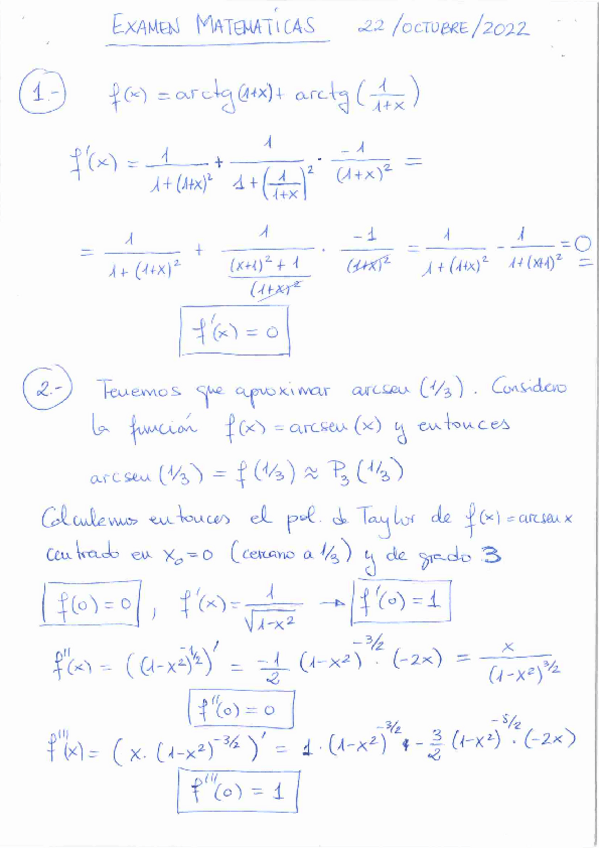 EXAMEN MATEMATÍCAS 22/OCTUBRE/2022
1.- f(x) = arctg(1+x) + arctg(1/(1+x))
f'(x) = 1/(1+(1+x)²) + 1/(1+(1/(1+x))²) · -1/(1+x)² =
= 1/(1+(1+x)²) + 1/(((x+1)²+1)/(1+x)²) · -1/(1+x)² = 1/(1+(1+x)²) - 1/(1+(x+1)²) = 0
f'(x) = 0
2.- Tenemos que aproximar arcsen (1/3). Considero
la función f(x) = arcsen(x) y entonces
arcsen(1/3) = f(1/3) ≈ P₃(1/3)
Calculemos entonces el pol. de Taylor de f(x) = arcsen x
centrado en x₀=0 (cercano a 1/3) y de grado 3
f(0) = 0 , f'(x) = 1/√(1-x²) → f'(0) = 1
f''(x) = ((1-x²)^(-1/2))' = -1/2 (1-x²)^(-3/2) · (-2x) = x/(1-x²)^(3/2)
f''(0) = 0
f'''(x) = (x · (1-x²)^(-3/2))' = 1 · (1-x²)^(-3/2) - 3/2 (1-x²)^(-5/2) · (-2x)
f'''(0) = 1